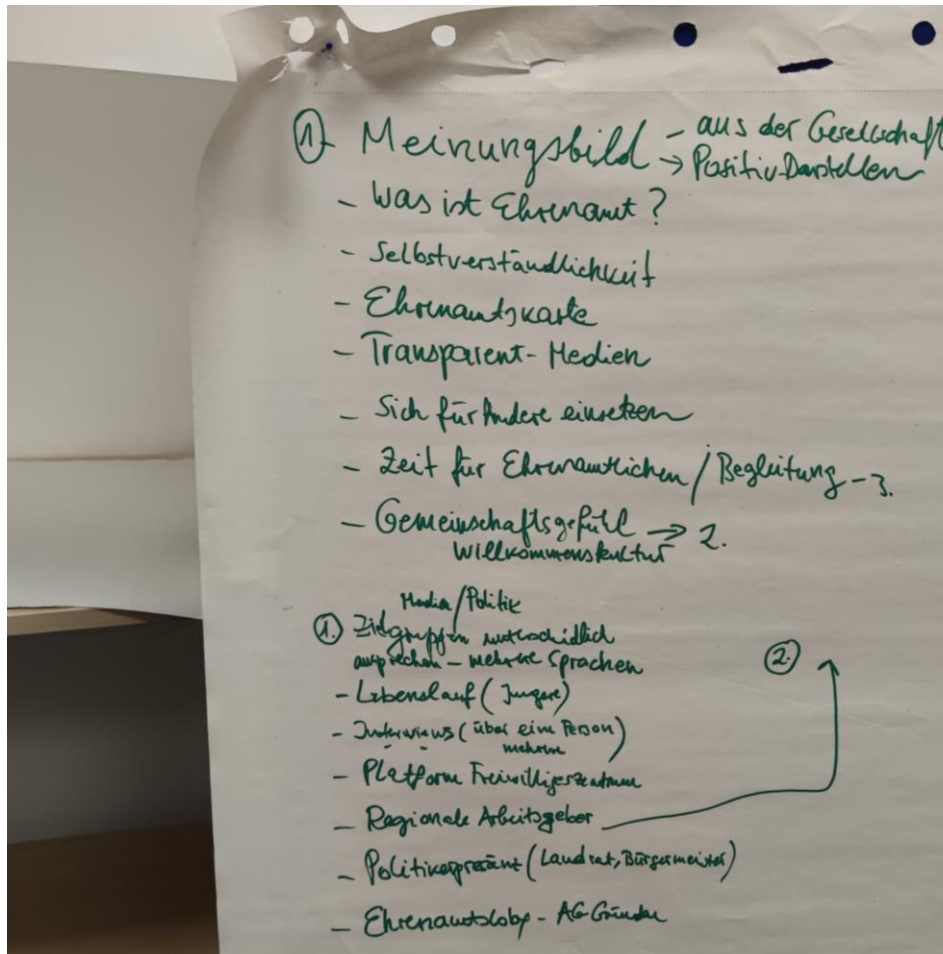 1. Meinungsbild - aus der Gesellschaft
→ Positiv-Darstellen
- Was ist Ehrenamt?
- Selbstverständlichkeit
- Ehrenamtskarte
- Transparent-Medien
- Sich für Andere einsetzen
- Zeit für Ehrenamtlichen / Begleitung - 3.
- Gemeinschaftsgefühl → 2.
Willkommenskultur
Media/Politik
1. Zielgruppen unterschidlich
ansprechen - mehrere Sprachen
2.
- Lebenslauf (Jungere)
- Interviews (über eine Person)
mehrere
- Platform Freiwilligenzentrum
- Regionale Arbeitsgeber
- Politikerpresänt (Landrat, Bürgermeister)
- Ehrenamtsloby - AG Gründe